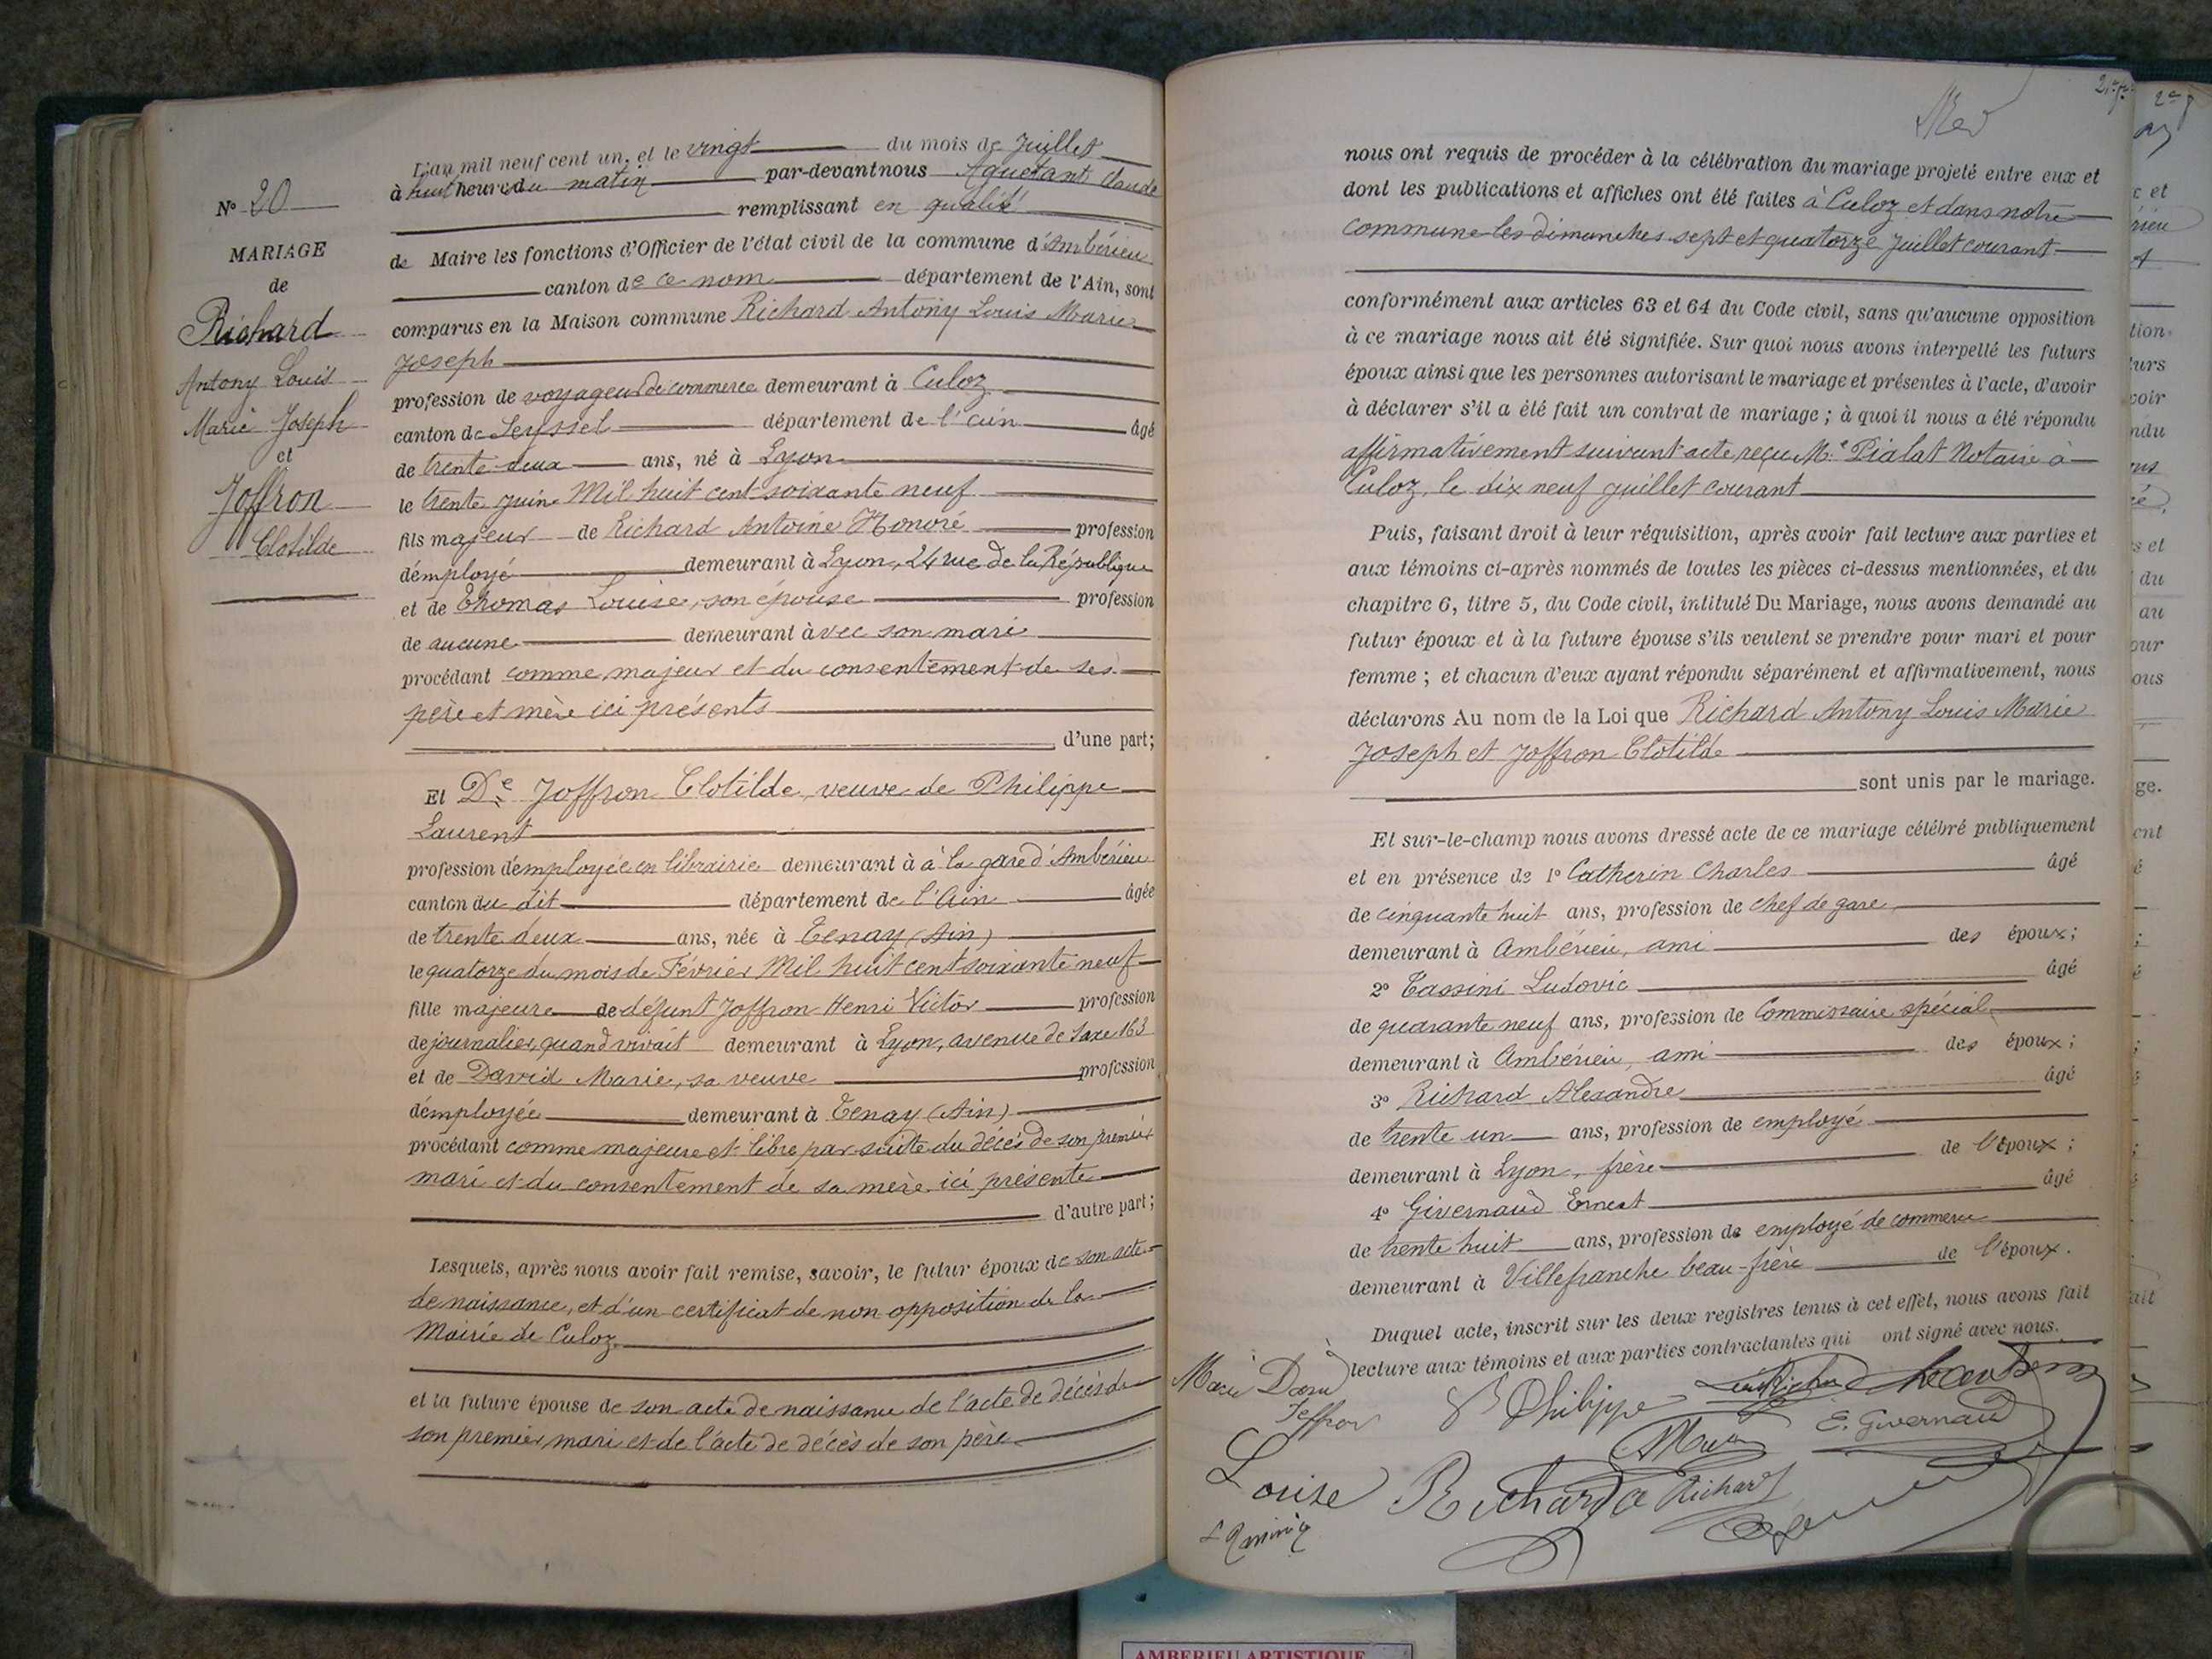 L'an mil neuf cent un, et le vingt du mois de Juillet
à huit heure du matin par-devant nous Aguetant Claude
remplissant en qualité
de Maire les fonctions d'Officier de l'état civil de la commune d'Ambérieu
canton de ce nom département de l'Ain, sont
comparus en la Maison commune Richard Antony Louis Marie
Joseph
profession de voyageur de commerce demeurant à Culoz
canton de Seyssel département de l'ain âgé
de trente deux ans, né à Lyon
le trente juin Mil huit cent soixante neuf
fils majeur de Richard Antoine Honoré profession
d'employé demeurant à Lyon, 24 rue de la République
et de Thomas Louise, son épouse profession
de aucune demeurant avec son mari
procédant comme majeur et du consentement de ses
père et mère ici présents
d'une part;
Et De Joffron Clotilde, veuve de Philippe
Laurent
profession d'employée en librairie demeurant à à la gare d'Ambérieu
canton du dit département de l'Ain âgée
de trente deux ans, née à Tenay (Ain)
le quatorze du mois de Février Mil huit cent soixante neuf
fille majeure de défunt Joffron Henri Victor profession
de journalier, quand vivait demeurant à Lyon, avenue de Saxe 163
et de David Marie, sa veuve profession
d'employée demeurant à Tenay (Ain)
procédant comme majeure et libre par suite du décès de son premier
mari et du consentement de sa mère ici présente
d'autre part;
Lesquels, après nous avoir fait remise, savoir, le futur époux de son acte
de naissance, et d'un certificat de non opposition de la
Mairie de Culoz
et la future épouse de son acte de naissance de l'acte de décès de
son premier mari et de l'acte de décès de son père
N° 20
MARIAGE
de
Richard
Antony Louis
Marie Joseph
et
Joffron
Clotilde
nous ont requis de procéder à la célébration du mariage projeté entre eux et
dont les publications et affiches ont été faites à Culoz et dans notre
commune les dimanches sept et quatorze Juillet courant
conformément aux articles 63 et 64 du Code civil, sans qu'aucune opposition
à ce mariage nous ait été signifiée. Sur quoi nous avons interpellé les futurs
époux ainsi que les personnes autorisant le mariage et présentes à l'acte, d'avoir
à déclarer s'il a été fait un contrat de mariage ; à quoi il nous a été répondu
affirmativement suivant acte reçu Me Pialat Notaire à
Culoz, le dix neuf juillet courant
Puis, faisant droit à leur réquisition, après avoir fait lecture aux parties et
aux témoins ci-après nommés de toutes les pièces ci-dessus mentionnées, et du
chapitre 6, titre 5, du Code civil, intitulé Du Mariage, nous avons demandé au
futur époux et à la future épouse s'ils veulent se prendre pour mari et pour
femme ; et chacun d'eux ayant répondu séparément et affirmativement, nous
déclarons Au nom de la Loi que Richard Antony Louis Marie
Joseph et Joffron Clotilde
sont unis par le mariage.
Et sur-le-champ nous avons dressé acte de ce mariage célébré publiquement
et en présence de 1° Catherin Charles âgé
de cinquante huit ans, profession de chef de gare
demeurant à Ambérieu, ami des époux;
2° Tassini Ludovic âgé
de quarante neuf ans, profession de Commissaire spécial
demeurant à Ambérieu, ami des époux;
3° Richard Alexandre âgé
de trente un ans, profession de employé
demeurant à Lyon, frère de l'époux;
4° Givernaud Ernest âgé
de trente huit ans, profession de employé de commerce
demeurant à Villefranche beau-frère de l'époux.
Duquel acte, inscrit sur les deux registres tenus à cet effet, nous avons fait
lecture aux témoins et aux parties contractantes qui ont signé avec nous.
Marie David
Joffron
Philippe
E. Givernaud
Louise Richard
Richard
AMBERIEU ARTISTIQUE